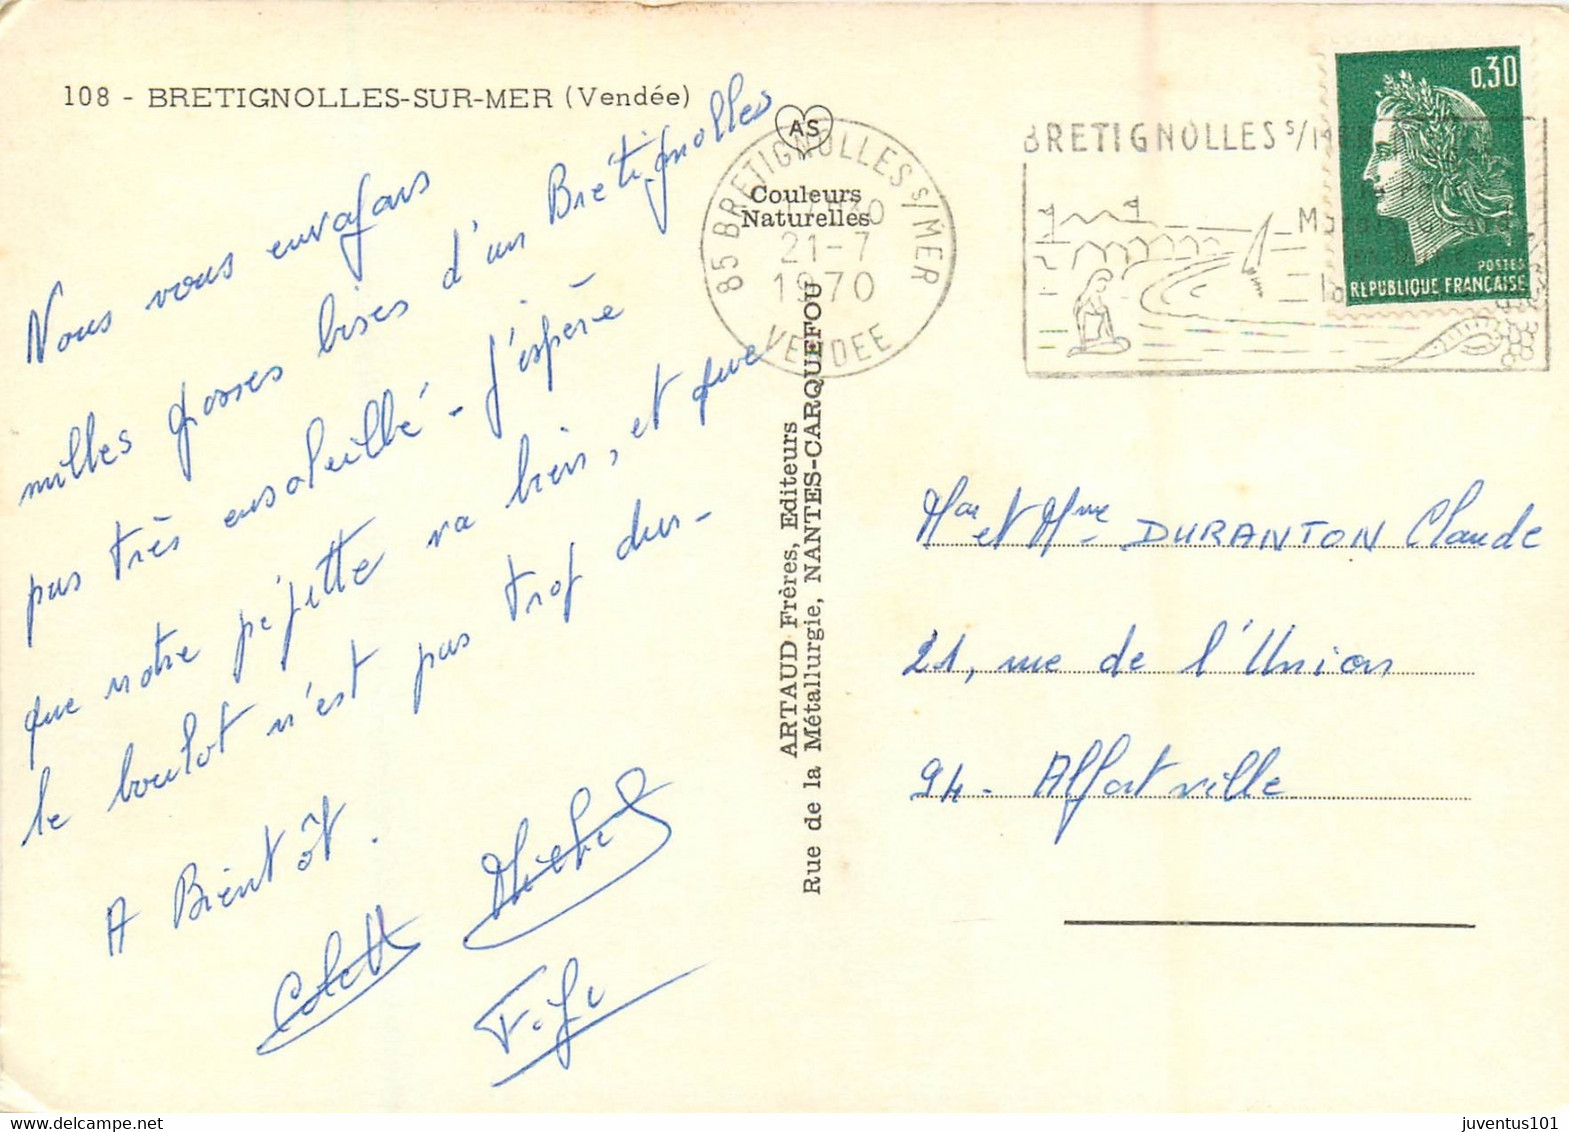 108 - BRETIGNOLLES-SUR-MER (Vendée)
Nous vous envoyons
milles grosses bises d'un Brétignolles
pas très ensoleillé - J'espère
que notre pépette va bien, et que
le boulot n'est pas trop dur -
A Bientôt.
Colette
Michel
AS
Couleurs
Naturelles
85 BRETIGNOLLES S/MER
21-7
1970
VENDEE
ARTAUD Frères, Editeurs
Rue de la Métallurgie, NANTES-CARQUEFOU
BRETIGNOLLES S/MER
0,30
POSTES
REPUBLIQUE FRANÇAISE
Mr et Mme DURANTON Claude
21, rue de l'Union
94. Alfortville
juventus101